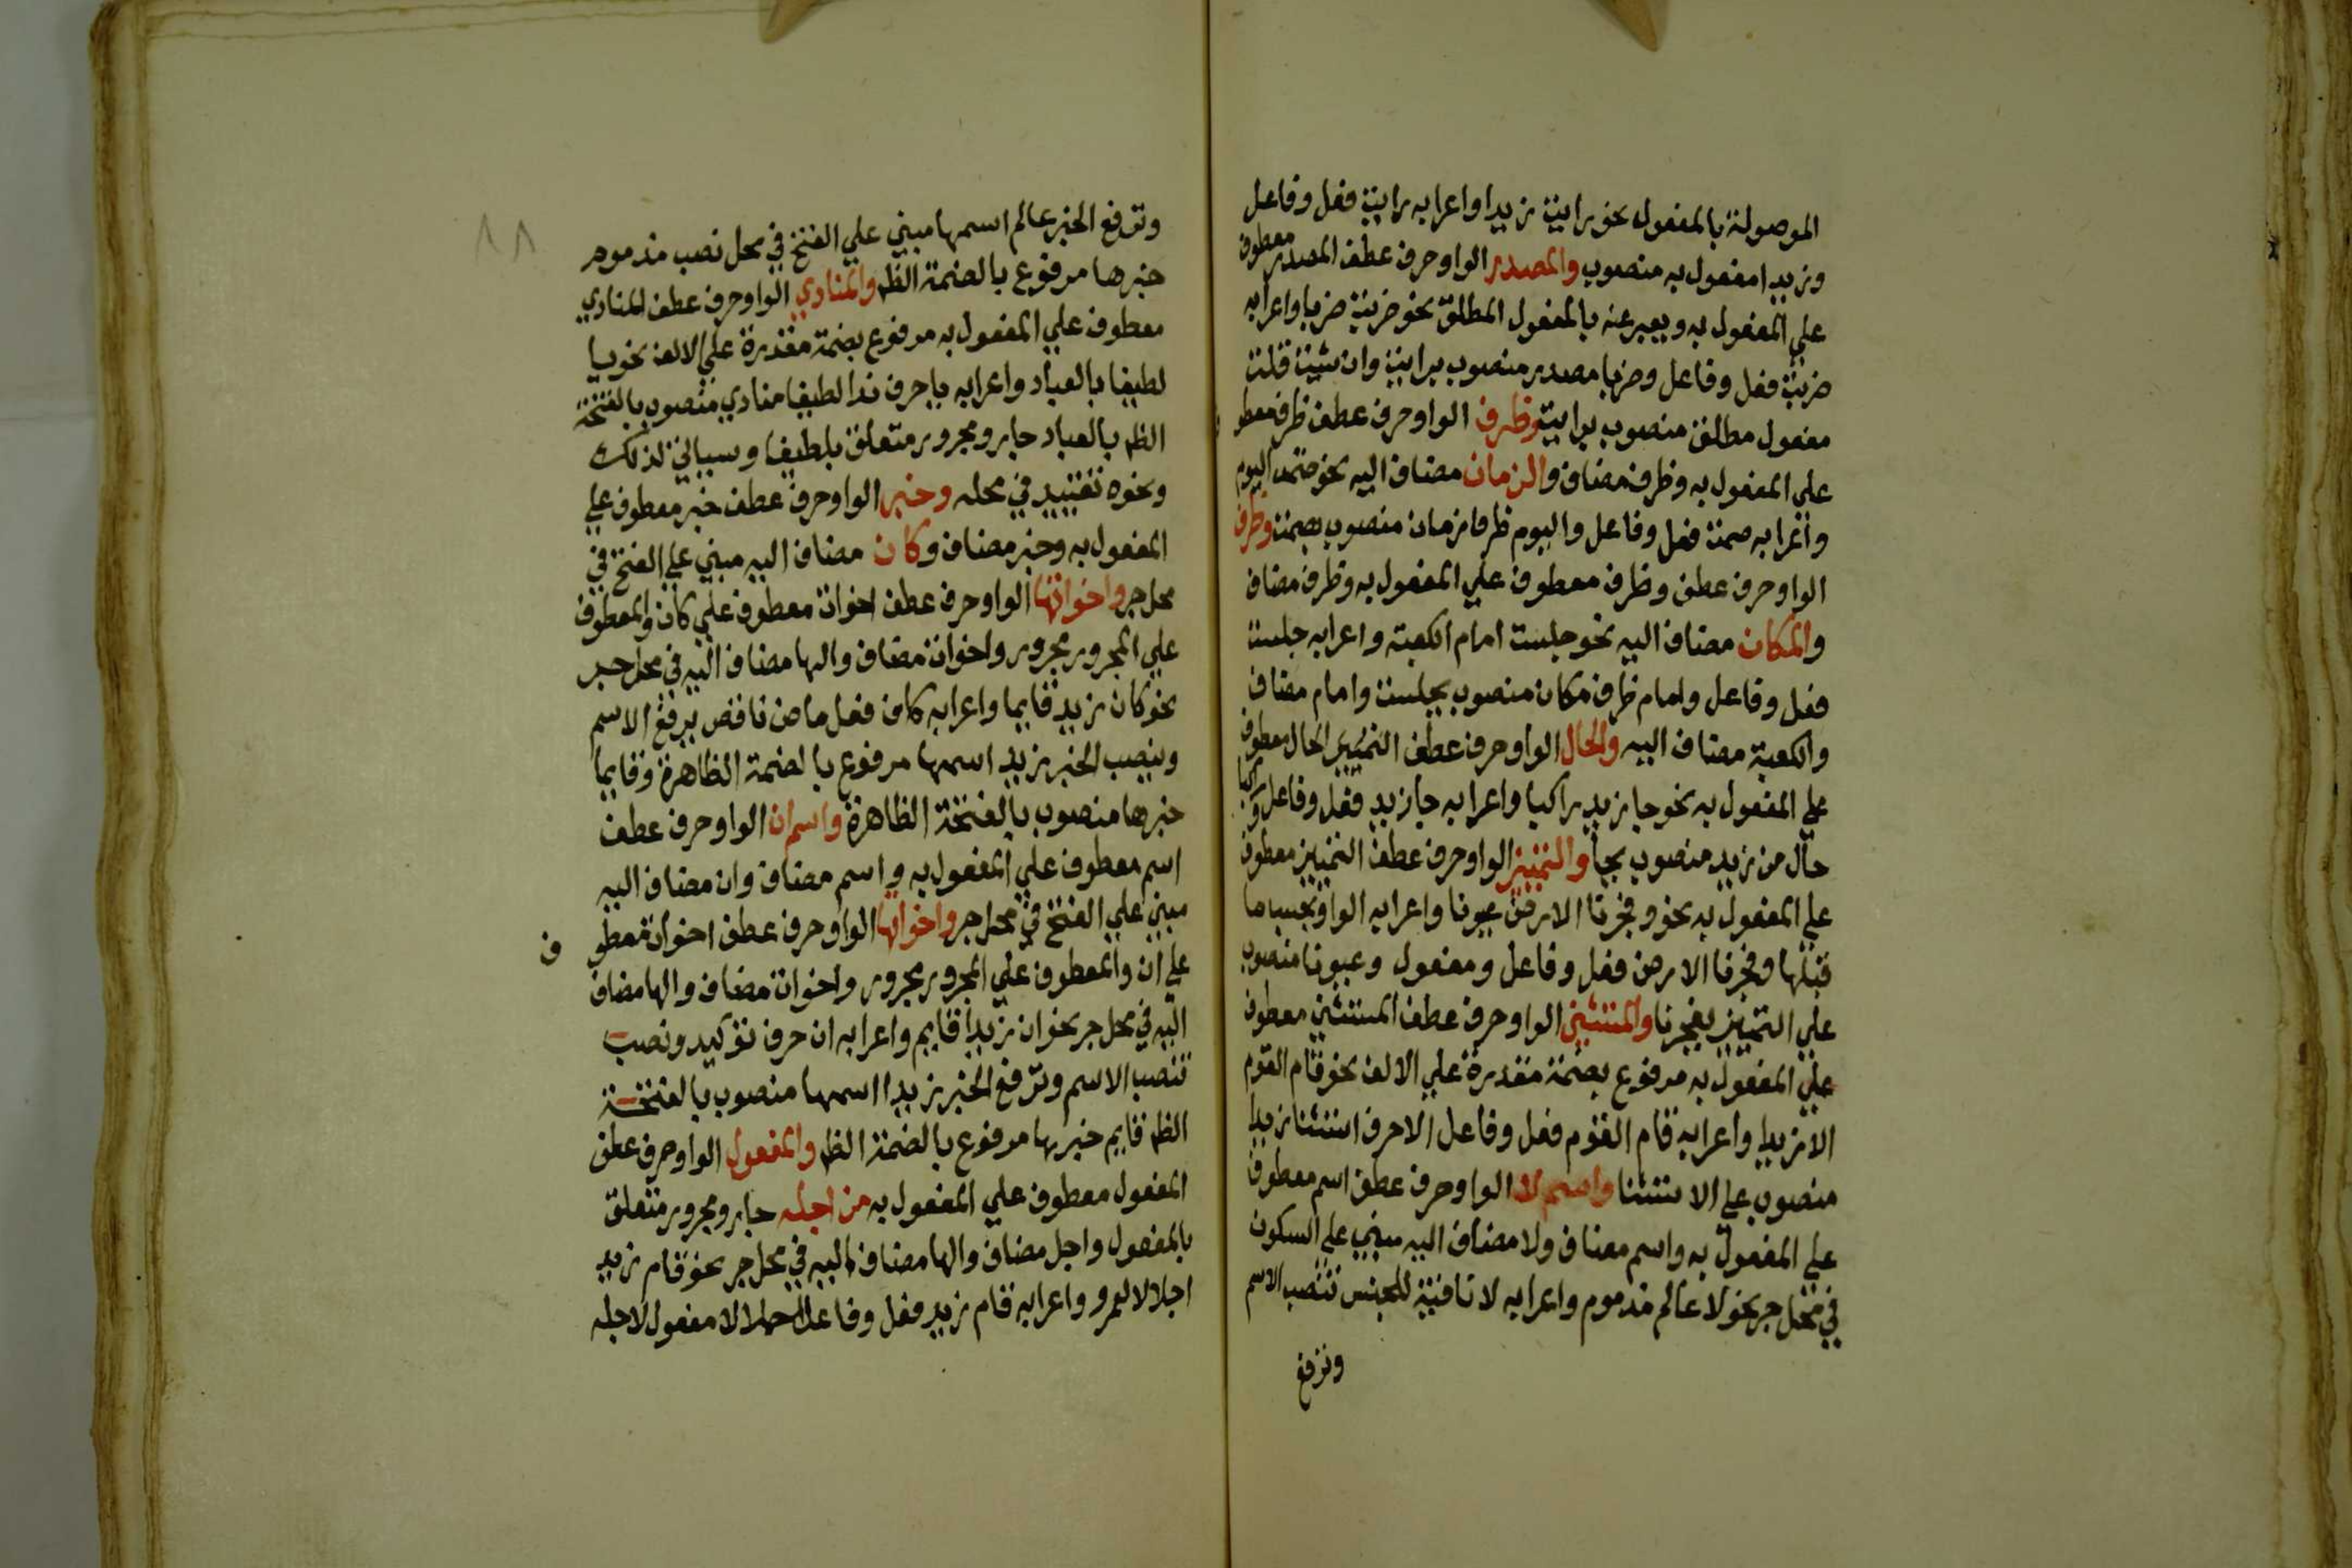 الموصولة بالمفعول نحو رايت زيدا واعرابه رايت فعل وفاعل
وزيدا مفعول به منصوب والمصدر الواو حرف عطف المصدر معطوف
علي المفعول به ويعبر عنه بالمفعول المطلق نحو ضربت ضربا واعرابه
ضربت فعل وفاعل وضربا مصدر منصوب برايت وان شيت قلت
مفعول مطلق منصوب برايت وظرف الواو حرف عطف ظرف معطو
علي المفعول به وظرف مضاف والزمان مضاف اليه نحو صمت اليوم
واعرابه صمت فعل وفاعل واليوم ظرف زمان منصوب بصمت وظرف
الواو حرف عطف وظرف معطوف علي المفعول به وظرف مضاف
والمكان مضاف اليه نحو جلست امام الكعبة واعرابه جلست
فعل وفاعل وامام ظرف مكان منصوب بجلست وامام مضاف
والكعبة مضاف اليه والحال الواو حرف عطف التمييز الحال معطوف
علي المفعول به نحو جا زيد راكبا واعرابه جا زيد فعل وفاعل وراكبا
حال من زيد منصوب بجا والتمييز الواو حرف عطف التمييز معطوف
علي المفعول به نحو وفجرنا الارض عيونا واعرابه الواو بحسب ما
قبلها وفجرنا الارض فعل وفاعل ومفعول وعيونا منصوب
علي التمييز بفجرنا والمستثني الواو حرف عطف المستثني معطوف
علي المفعول به مرفوع بضمة مقدرة علي الالف نحو قام القوم
الا زيدا واعرابه قام القوم فعل وفاعل الا حرف استثنا زيدا
منصوب علي الاستثنا واسم لا الواو حرف عطف اسم معطوف
علي المفعول به واسم مضاف ولا مضاف اليه مبني علي السكون
في محل جر نحو لا عالم مذموم واعرابه لا نافية للجنس تنصب الاسم
وترفع
وترفع الخبر عالم اسمها مبني علي الفتح في محل نصب مذموم
خبرها مرفوع بالضمة الظ والمنادي الواو حرف عطف المنادي
معطوف علي المفعول به مرفوع بضمة مقدرة علي الالف نحو يا
لطيفا بالعباد واعرابه يا حرف ندا لطيفا منادي منصوب بالفتحة
الظ بالعباد جار ومجرور متعلق بلطيفا وسياتي لذلك
ونحوه تقييد في محله وخبر الواو حرف عطف خبر معطوف علي
المفعول به وخبر مضاف وكان مضاف اليه مبني علي الفتح في
محل جر واخواتها الواو حرف عطف اخوات معطوف علي كان والمعطوف
علي المجرور مجرور واخوات مضاف والها مضاف اليه في محل جر
نحو كان زيد قايما واعرابه كان فعل ماض ناقص يرفع الاسم
وينصب الخبر زيد اسمها مرفوع بالضمة الظاهرة وقايما
خبرها منصوب بالفتحة الظاهرة واسم ان الواو حرف عطف
اسم معطوف علي المفعول به واسم مضاف وان مضاف اليه
مبني علي الفتح في محل جر واخواتها الواو حرف عطف اخوات معطو ف
علي ان والمعطوف علي المجرور مجرور واخوات مضاف والها مضاف
اليه في محل جر نحو ان زيدا قايم واعرابه ان حرف توكيد ونصب
تنصب الاسم وترفع الخبر زيدا اسمها منصوب بالفتحة
الظ قايم خبرها مرفوع بالضمة الظ والمفعول الواو حرف عطف
المفعول معطوف علي المفعول به من اجله جار ومجرور متعلق
بالمفعول واجل مضاف والها مضاف اليه في محل جر نحو قام زيد
اجلالا لعمرو واعرابه قام زيد فعل وفاعل اجلالا مفعول لاجله